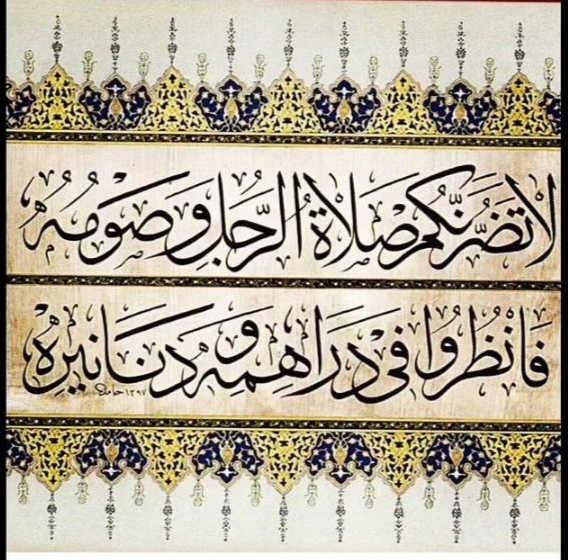 لَا تَضُرَّنَّكُمْ صَلَاةُ الرَّجُلِ وَصَوْمُهُ
فَانْظُرُوا فِي دَرَاهِمِهِ وَدَنَانِيرِهِ